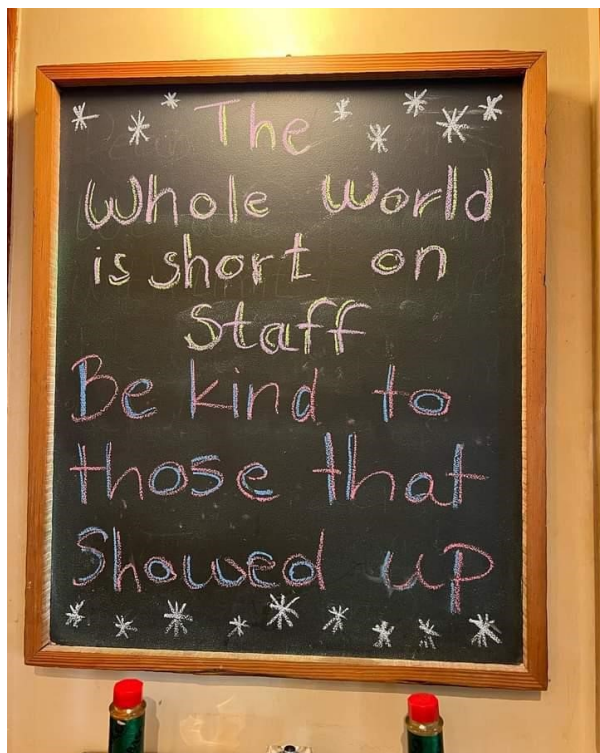 The
Whole World
is short on
Staff
Be kind to
those that
Showed up